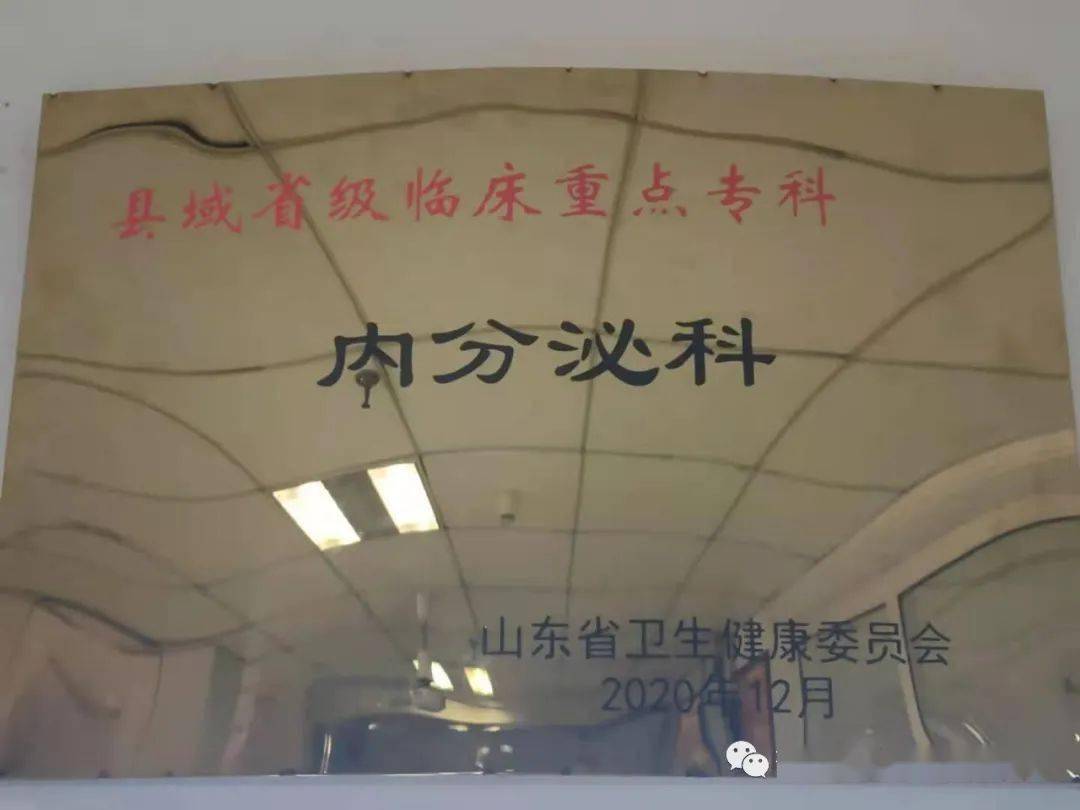 县域省级临床重点专科
内分泌科
山东省卫生健康委员会
2020年12月